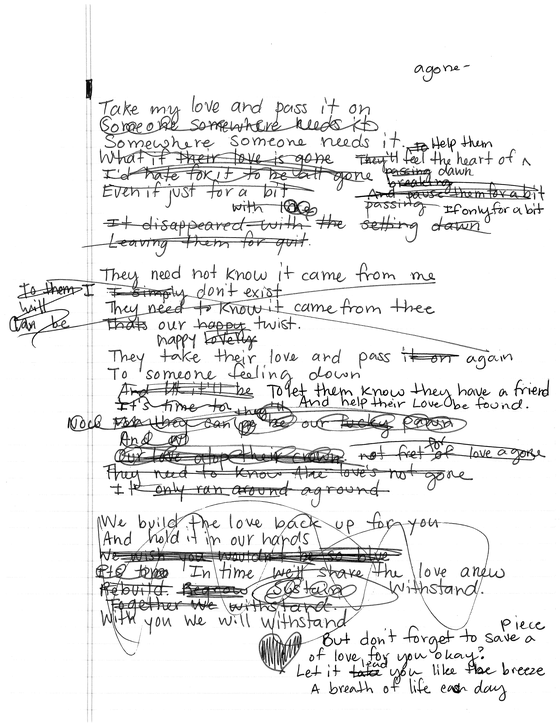 agone-
Take my love and pass it on
Someone somewhere needs it
Somewhere someone needs it. To Help them
What if their love is gone They'll feel the heart of
I'd hate for it to be all gone passing dawn
breaking
Even if just for a bit And pause them for a bit
with love passing If only for a bit
It disappeared with the setting dawn
Leaving them for quit.
They need not know it came from me
To them I I simply don't exist
will They need to know it came from thee
Can be Thats our happy twist.
happy lovely
They take their love and pass it on again
To someone feeling down
And it'll be To let them know they have a friend
It's time to And help their Love be found.
can be our lucky pawn
And
for
Our love atop their crown not fret of love agone
They need to know that love's not gone
It only ran around aground
We build the love back up for you
And hold it in our hands
We wish you wouldn't be so blue
In time we'll share the love anew
Rebuild Regrow Sustain Withstand.
Together we withstand.
With you we will withstand
piece
But don't forget to save a
of love for you okay?
lead
Let it take you like the breeze
A breath of life each day